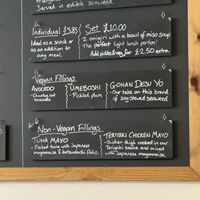 Served in edible seaweed.
Individual £3.85
Meal as a snack or
as an addition to
any meal.
Set £10.00
2 onigiri with a bowl of miso soup
The perfect light lunch portion.
Add pickled veg for £2.50 extra.
Vegan Fillings
Avocado
Umeboshi
- Pickled plum
Gohan Desu Yo
- Our take on this brand
of soy stewed seaweed
Non-Vegan Fillings
Tuna Mayo
- Flaked tuna with Japanese
mayonnaise & katsuobushi
Teriyaki Chicken Mayo
- Chicken thigh cooked in our
Teriyaki sauce and mixed
with Japanese mayonnaise.